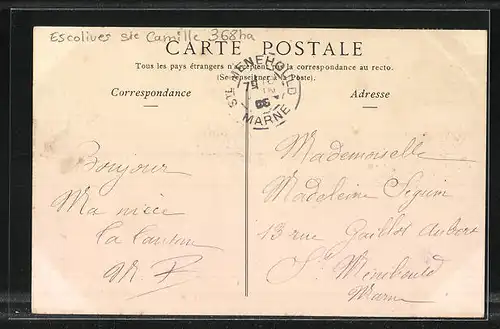 Escolives Ste Camille 368ha
CARTE POSTALE
Tous les pays étrangers n'acceptent pas la correspondance au recto.
(Se renseigner à la Poste).
Correspondance
Adresse
STE MENEHOULD
MARNE
Bonjour
Ma nièce
la
M. F
Mademoiselle
Madeleine Seguin
13 rue Gaillot Aubert
Ste Ménéhould
Marne